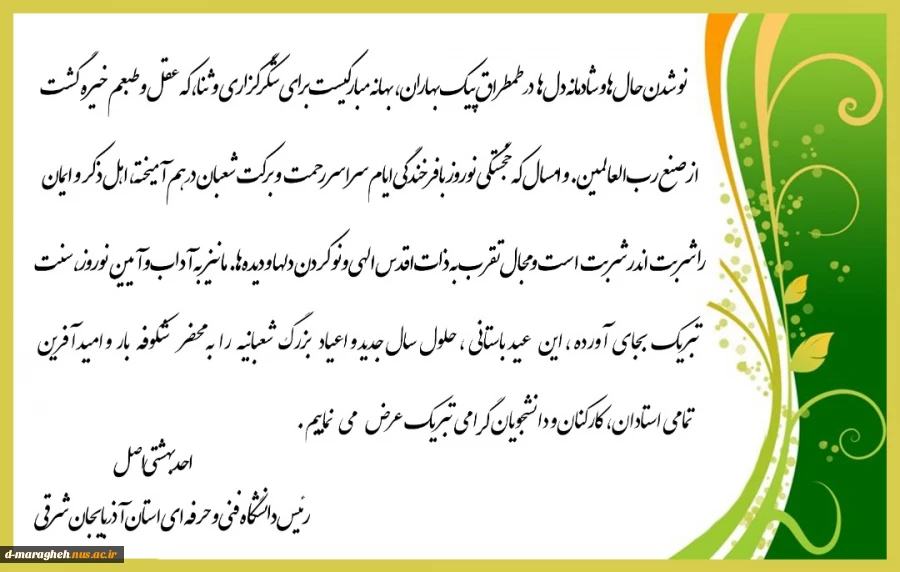 نوشدن حال ها و شادمانه دل ها در طمطراق پیک بهاران، بهانه مبارکیست برای شکرگزاری و ثنا، که عقل و طبعم خیره گشت
از صنع رب العالمین. و امسال که خجستگی نوروز با فرخندگی ایام سراسر رحمت و برکت شعبان در هم آمیخته، اهل ذکر و ایمان
را شربت اندر شربت است و مجال تقرب به ذات اقدس الهی و نو کردن دلها و دیده ها. ما نیز به آداب و آیین نوروز، سنت
تبریک بجای آورده ، این عید باستانی ، حلول سال جدید و اعیاد بزرگ شعبانیه را به محضر شکوفه بار و امید آفرین
تمامی استادان، کارکنان و دانشجویان گرامی تبریک عرض می نماییم .
احد بهشتی اصل
رئیس دانشگاه فنی و حرفه ای استان آذربایجان شرقی
d-maragheh.nus.ac.ir